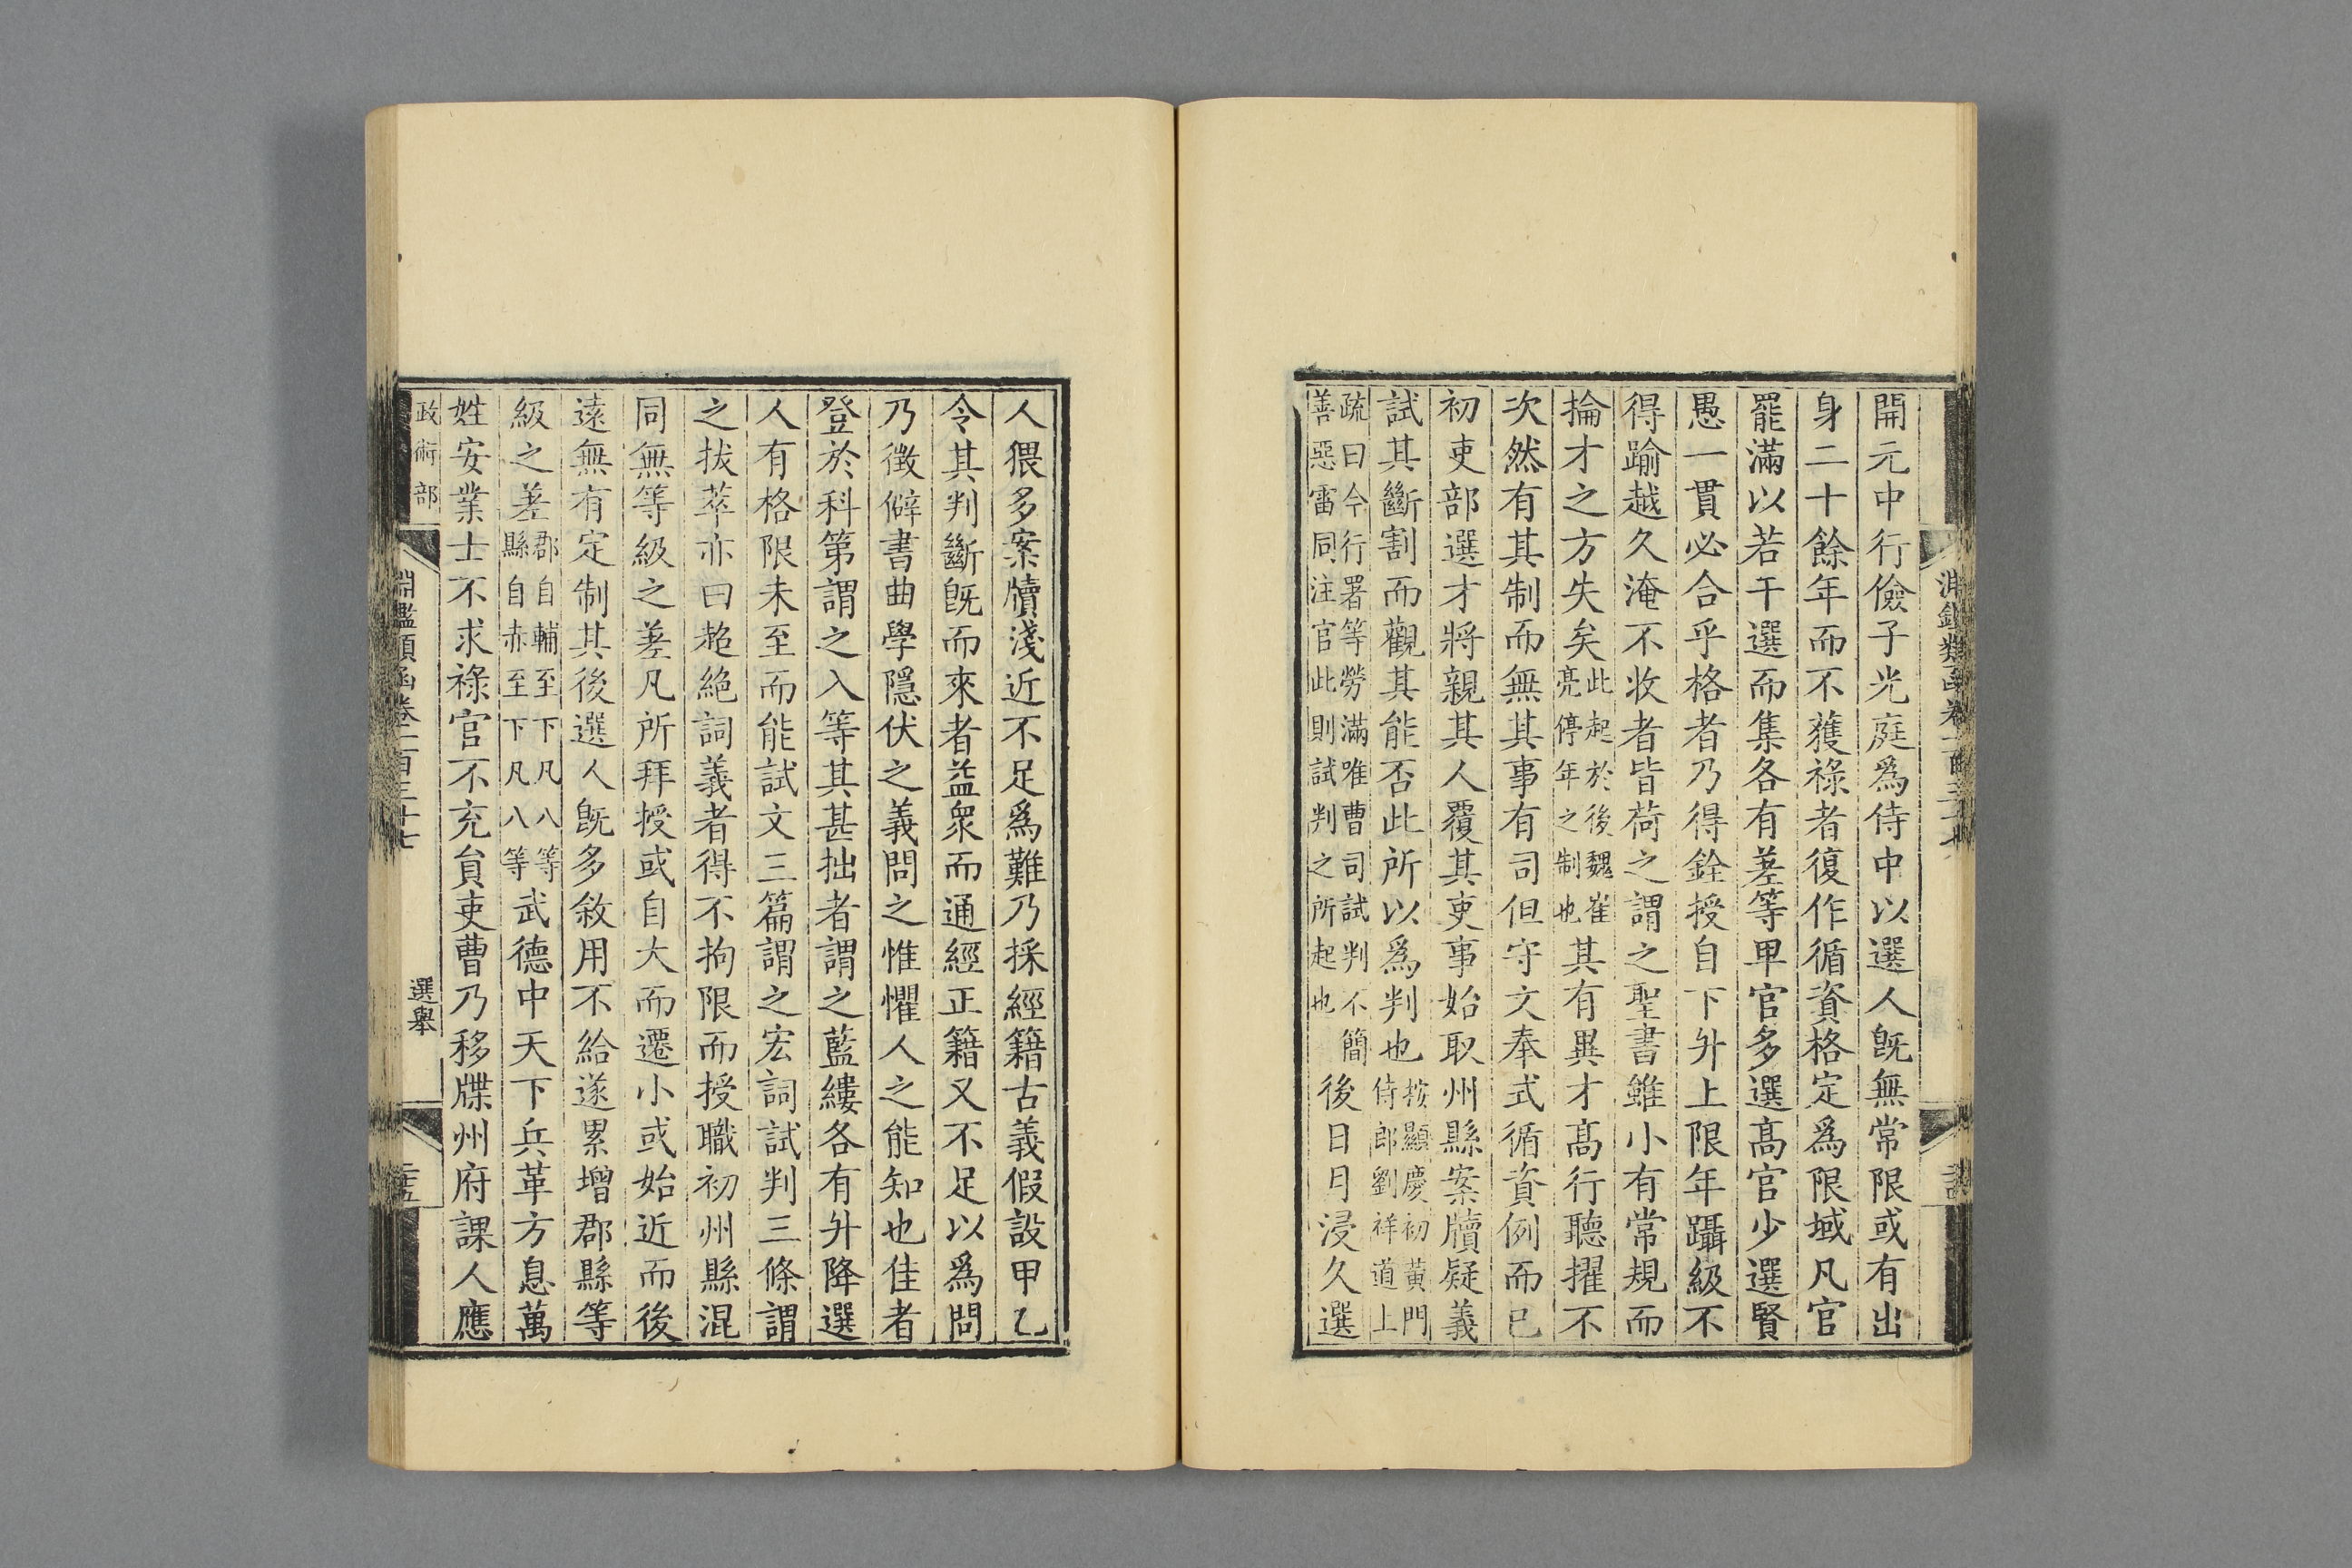 開元中行儉子光庭爲侍中以選人旣無常限或有出
身二十餘年而不獲祿者復作循資格定爲限域凡官
罷滿以若干選而集各有差等卑官多選高官少選賢
愚一貫必合乎格者乃得銓授自下升上限年躡級不
得踰越久淹不收者皆荷之謂之聖書雖小有常規而
掄才之方失矣此起於後魏崔亮停年之制也其有異才高行聽擢不
次然有其制而無其事有司但守文奉式循資例而已
初吏部選才將親其人覆其吏事始取州縣案牘疑義
試其斷割而觀其能否此所以爲判也按顯慶初黃門侍郎劉祥道上
疏曰今行署等勞滿唯曹司試判不簡善惡雷同注官此則試判之所起也後日月浸久選
人猥多案牘淺近不足爲難乃採經籍古義假設甲乙
令其判斷旣而來者益衆而通經正籍又不足以爲問
乃徵僻書曲學隱伏之義問之惟懼人之能知也佳者
登於科第謂之入等其甚拙者謂之藍縷各有升降選
人有格限未至而能試文三篇謂之宏詞試判三條謂
之拔萃亦曰超絶詞義者得不拘限而授職初州縣混
同無等級之差凡所拜授或自大而遷小或始近而後
遠無有定制其後選人旣多敘用不給遂累增郡縣等
級之差郡自輔至下凡八等縣自赤至下凡八等武德中天下兵革方息萬
姓安業士不求祿官不充員吏曹乃移牒州府課人應
政術部
淵鑑類函卷一百三十七
選舉